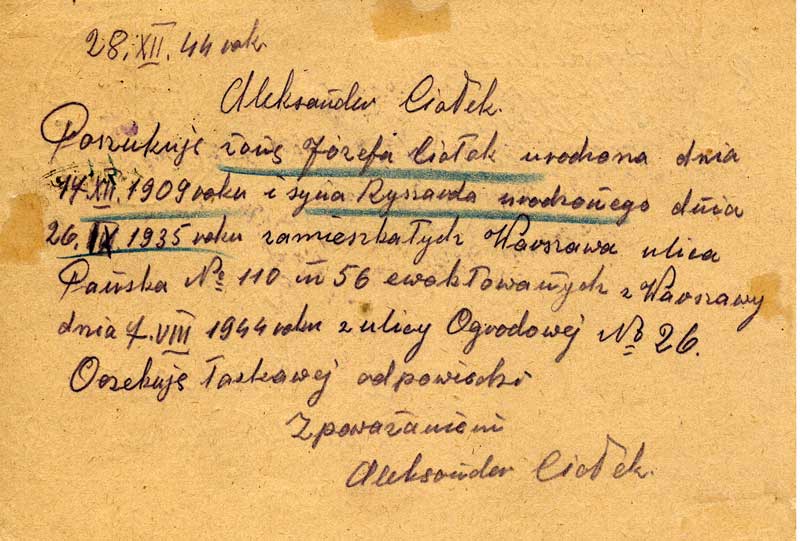 28.XII.44 rok
Aleksander Ciołek.
Poszukuję żonę Józefa Ciołek urodzona dnia
14 XII. 1909 roku i syna Ryszarda urodzonego dnia
26. IX 1935 roku zamieszkałych Warszawa ulica
Pańska № 110 m 56 ewaktowanych z Warszawy
dnia 7. VIII 1944 roku z ulicy Ogrodowej № 26.
Oczekuję łaskawej odpowiedzi
Z poważaniem
Aleksander Ciołek.